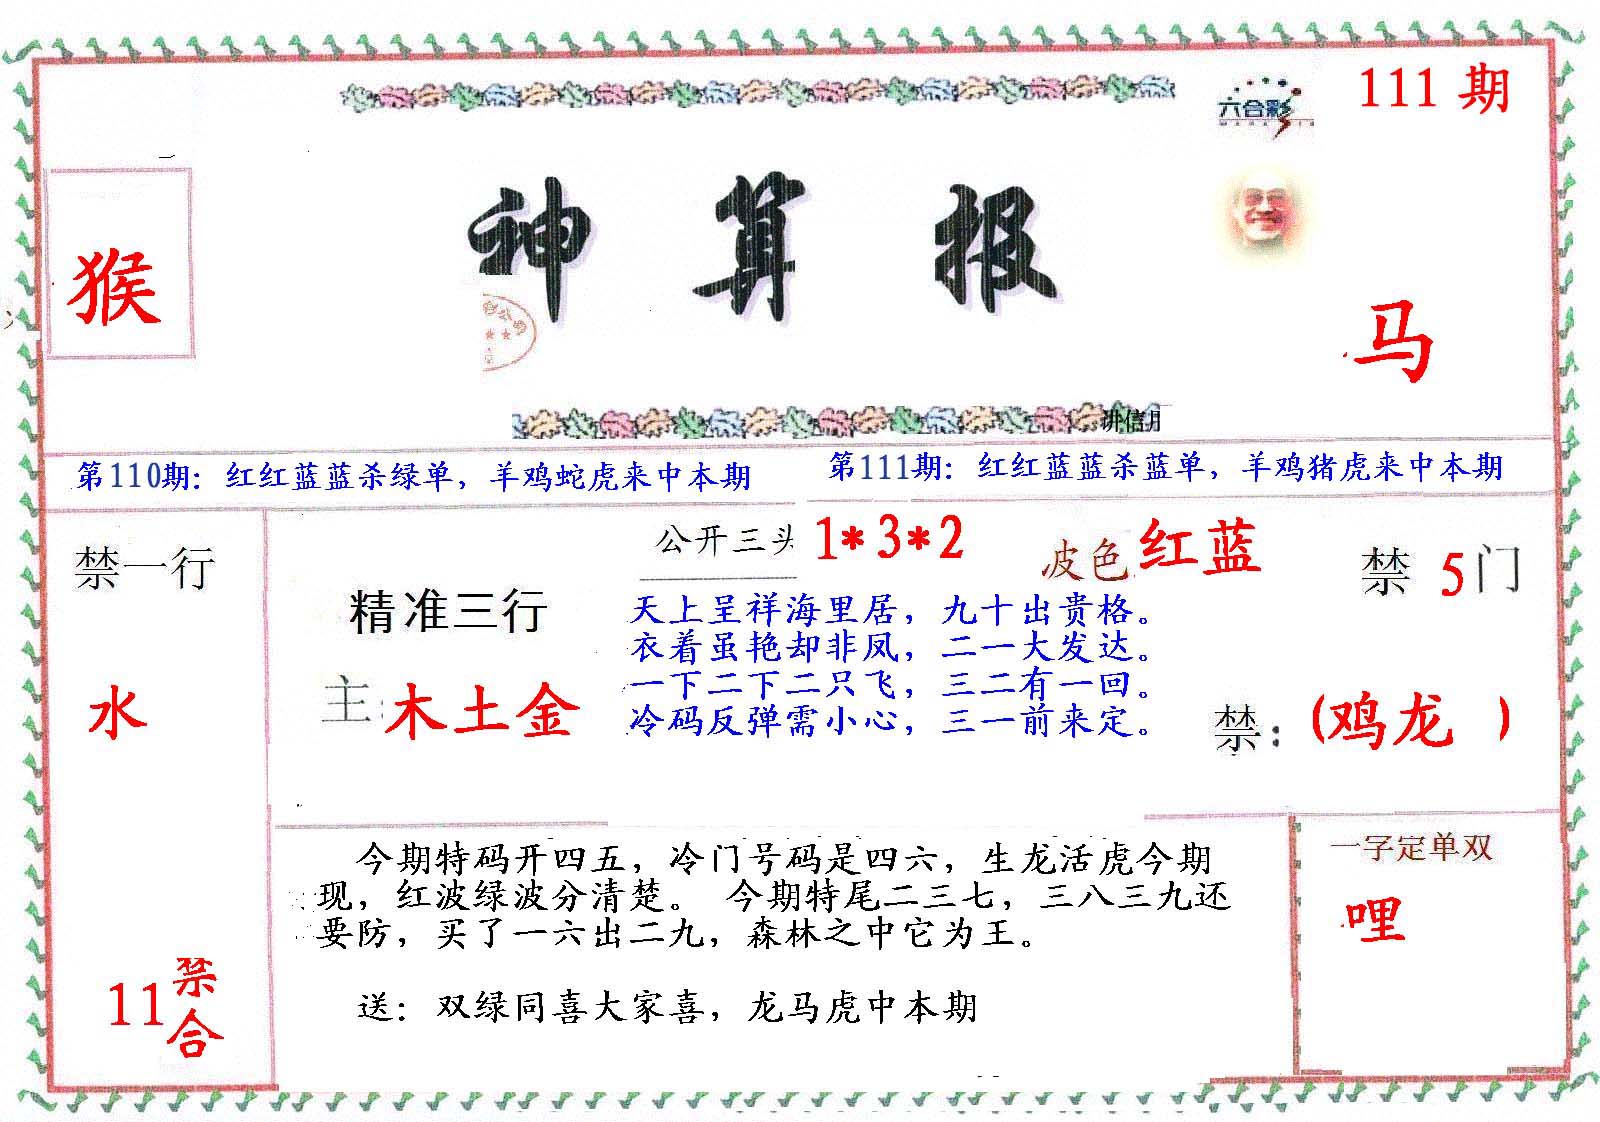 六合彩
111 期
猴
神算报
马
讲信用
第110期：红红蓝蓝杀绿单，羊鸡蛇虎来中本期
第111期：红红蓝蓝杀蓝单，羊鸡猪虎来中本期
禁一行
水
11禁合
精准三行
主：木土金
公开三头 1*3*2
波色 红蓝
天上呈祥海里居，九十出贵格。
衣着虽艳却非凤，二一大发达。
一下二下二只飞，三二有一回。
冷码反弹需小心，三一前来定。
禁 5 门
禁：(鸡龙 )
今期特码开四五，冷门号码是四六，生龙活虎今期
现，红波绿波分清楚。 今期特尾二三七，三八三九还
要防，买了一六出二九，森林之中它为王。
送：双绿同喜大家喜，龙马虎中本期
一字定单双
哩